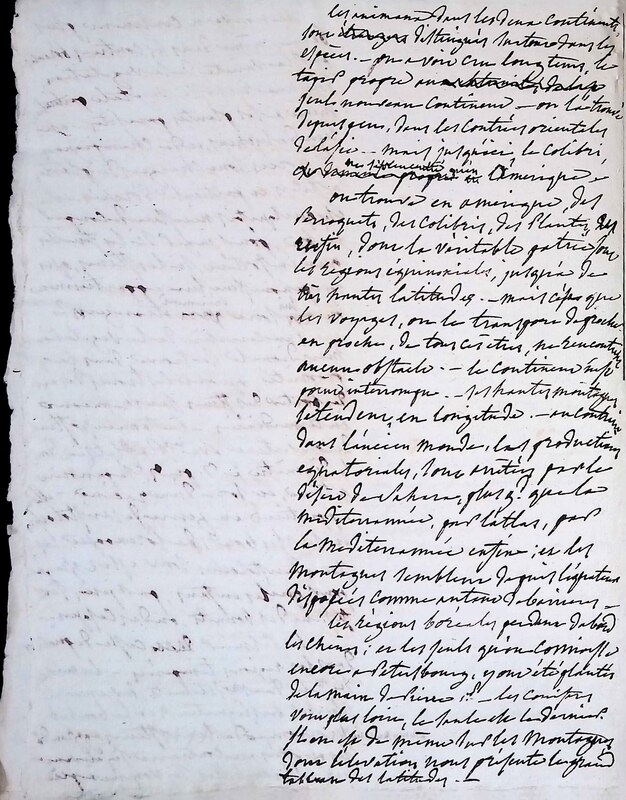 les animaux dans les deux continents,
sont étrangers distingués surtout dans les
espèces. — on a vait cru longtems, le
tapir propre au
seul nouveau Continent — on l'a trouvé
depuis peu, dans les Contrées orientales
de l'asie. — mais jusqu'ici le Colibri
ne se rencontre qu'en L'Amérique.
on trouve en amérique, des
Perroquets, des Colibris, des Plantes,
enfin, dont la véritable patrie sont
les régions équinoxiales, jusqu'à de
très hautes latitudes. — mais c'est que
les voyages, ou le transport de proche
en proche, de tous ces êtres, ne rencontre
aucun obstacle. — le Continent n'est
point interrompu. — ses hautes montagnes
s'étendent, en longitude. — au contraire
dans l'ancien monde, les productions
équatoriales, sont arrêtées par le
désert de Sahara, plus g.d que la
méditerrannée, par l'atlas, par
la méditerrannée enfin ; et les
montagnes semblent depuis l'équateur
disposées comme autant de barrières —
les Régions boréales perdent d'abord
les chênes ; et les seuls qu'on connoisse
encore à Petersbourg, y sont été plantés
de la main de Pierre 1.er — les conifères
vont plus loin, le saule est le dernier.
Il en est de même sur les Montagnes
dont l'élévation nous présente le grand
tableau des latitudes. —